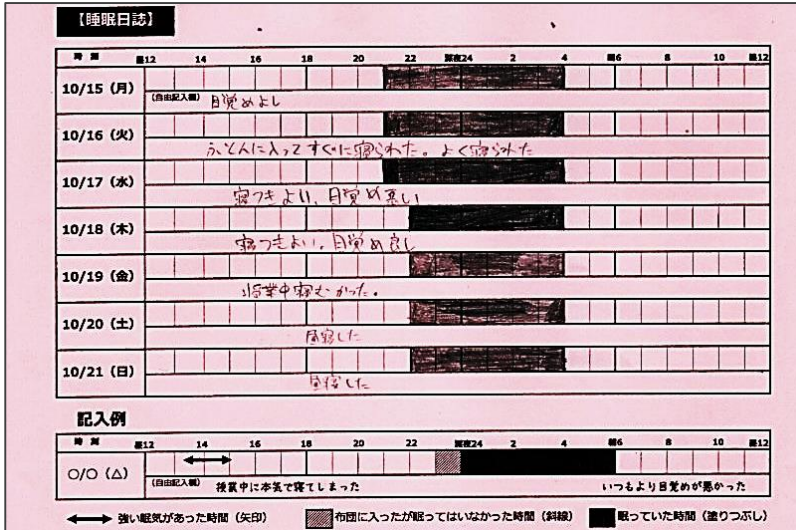 【睡眠日誌】
時刻 昼12 14 16 18 20 22 深夜24 2 4 朝6 8 10 昼12
10/15（月）
(自由記入欄) 目覚めよし
10/16（火）
ふとんに入ってすぐに寝られた。よく寝られた
10/17（水）
寝つきよい、目覚め悪い
10/18（木）
寝つきよい。目覚め良し
10/19（金）
授業中寝むかった。
10/20（土）
昼寝した
10/21（日）
昼寝した
記入例
時刻 昼12 14 16 18 20 22 深夜24 2 4 朝6 8 10 昼12
○/○（△）
(自由記入欄) 授業中に本気で寝てしまった いつもより目覚めが悪かった
強い眠気があった時間（矢印） 布団に入ったが眠ってはいなかった時間（斜線） 眠っていた時間（塗りつぶし）